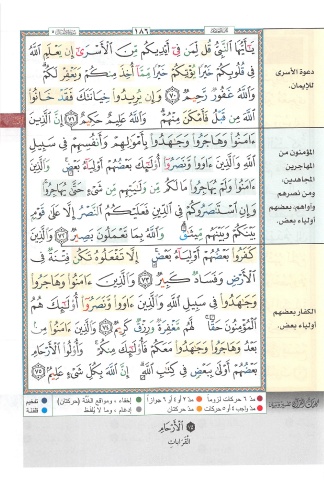 ١٨٦
يَٰٓأَيُّهَا ٱلنَّبِىُّ قُل لِّمَن فِىٓ أَيْدِيكُم مِّنَ ٱلْأَسْرَىٰٓ إِن يَعْلَمِ ٱللَّهُ
فِى قُلُوبِكُمْ خَيْرًا يُؤْتِكُمْ خَيْرًا مِّمَّآ أُخِذَ مِنكُمْ وَيَغْفِرْ لَكُمْ
وَٱللَّهُ غَفُورٌ رَّحِيمٌ ﴿٧٠﴾ وَإِن يُرِيدُوا۟ خِيَانَتَكَ فَقَدْ خَانُوا۟
ٱللَّهَ مِن قَبْلُ فَأَمْكَنَ مِنْهُمْ وَٱللَّهُ عَلِيمٌ حَكِيمٌ ﴿٧١﴾ إِنَّ ٱلَّذِينَ
ءَامَنُوا۟ وَهَاجَرُوا۟ وَجَٰهَدُوا۟ بِأَمْوَٰلِهِمْ وَأَنفُسِهِمْ فِى سَبِيلِ
ٱللَّهِ وَٱلَّذِينَ ءَاوَوا۟ وَّنَصَرُوٓا۟ أُو۟لَٰٓئِكَ بَعْضُهُمْ أَوْلِيَآءُ بَعْضٍ وَٱلَّذِينَ
ءَامَنُوا۟ وَلَمْ يُهَاجِرُوا۟ مَا لَكُم مِّن وَلَٰيَتِهِم مِّن شَىْءٍ حَتَّىٰ يُهَاجِرُوا۟
وَإِنِ ٱسْتَنصَرُوكُمْ فِى ٱلدِّينِ فَعَلَيْكُمُ ٱلنَّصْرُ إِلَّا عَلَىٰ قَوْمٍۭ
بَيْنَكُمْ وَبَيْنَهُم مِّيثَٰقٌ وَٱللَّهُ بِمَا تَعْمَلُونَ بَصِيرٌ ﴿٧٢﴾ وَٱلَّذِينَ
كَفَرُوا۟ بَعْضُهُمْ أَوْلِيَآءُ بَعْضٍ إِلَّا تَفْعَلُوهُ تَكُن فِتْنَةٌ فِى
ٱلْأَرْضِ وَفَسَادٌ كَبِيرٌ ﴿٧٣﴾ وَٱلَّذِينَ ءَامَنُوا۟ وَهَاجَرُوا۟
وَجَٰهَدُوا۟ فِى سَبِيلِ ٱللَّهِ وَٱلَّذِينَ ءَاوَوا۟ وَّنَصَرُوٓا۟ أُو۟لَٰٓئِكَ هُمُ
ٱلْمُؤْمِنُونَ حَقًّا لَّهُم مَّغْفِرَةٌ وَرِزْقٌ كَرِيمٌ ﴿٧٤﴾ وَٱلَّذِينَ ءَامَنُوا۟ مِنۢ
بَعْدُ وَهَاجَرُوا۟ وَجَٰهَدُوا۟ مَعَكُمْ فَأُو۟لَٰٓئِكَ مِنكُمْ وَأُو۟لُوا۟ ٱلْأَرْحَامِ
بَعْضُهُمْ أَوْلَىٰ بِبَعْضٍ فِى كِتَٰبِ ٱللَّهِ إِنَّ ٱللَّهَ بِكُلِّ شَىْءٍ عَلِيمٌۢ ﴿٧٥﴾
دعوة الأسرى
للإيمان.
المؤمنون من
المهاجرين
المجاهدين،
ومن نصرهم
وآواهم، بعضهم
أولياء بعض.
الكفار بعضهم
أولياء بعض.
مد ٦ حركات لزوماً مد ٢ أو ٤ أو ٦ جوازاً إخفاء، ومواقع الغنّة (حركتان) تفخيم
مد واجب ٤ أو ٥ حركات مد حركتان إدغام، وما لا يُلفَظ قلقلة
القراءات